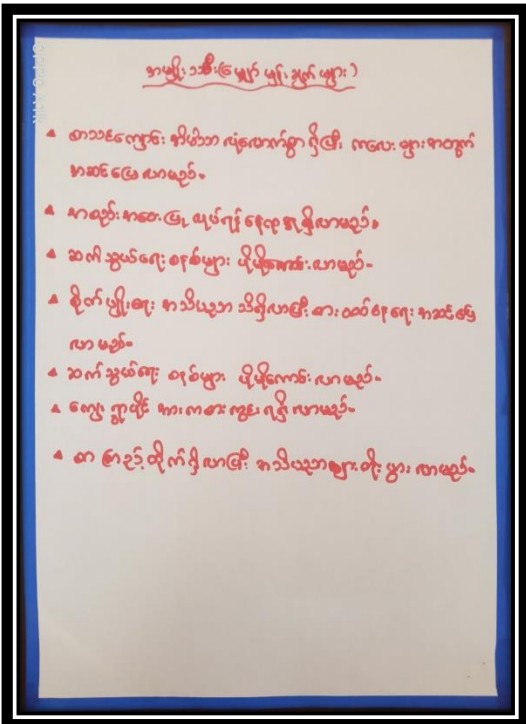 အကျိုးသီး(မျှော်မှန်းချက်များ)
▲ စာသင်ကျောင်း အိမ်သာ လုံလောက်စွာ ရှိပြီး ကလေးများအတွက်
အဆင်ပြေလာမည်။
▲ အစည်းအဝေး ပြုလုပ်ရန် နေရာ ရရှိလာမည်။
▲ ဆက်သွယ်ရေး စနစ်များ ပိုမိုကောင်းလာမည်။
▲ စိုက်ပျိုးရေး အသိပညာ သိရှိလာပြီး စားဝတ်နေရေး အဆင်ပြေ
လာမည်။
▲ ဆက်သွယ်ရေး စနစ်များ ပိုမိုကောင်းလာမည်။
▲ ကျေးရွာပိုင် အားကစားကွင်း ရရှိလာမည်။
▲ စာကြည့်တိုက်ရှိလာပြီး အသိပညာများတိုးပွားလာမည်။